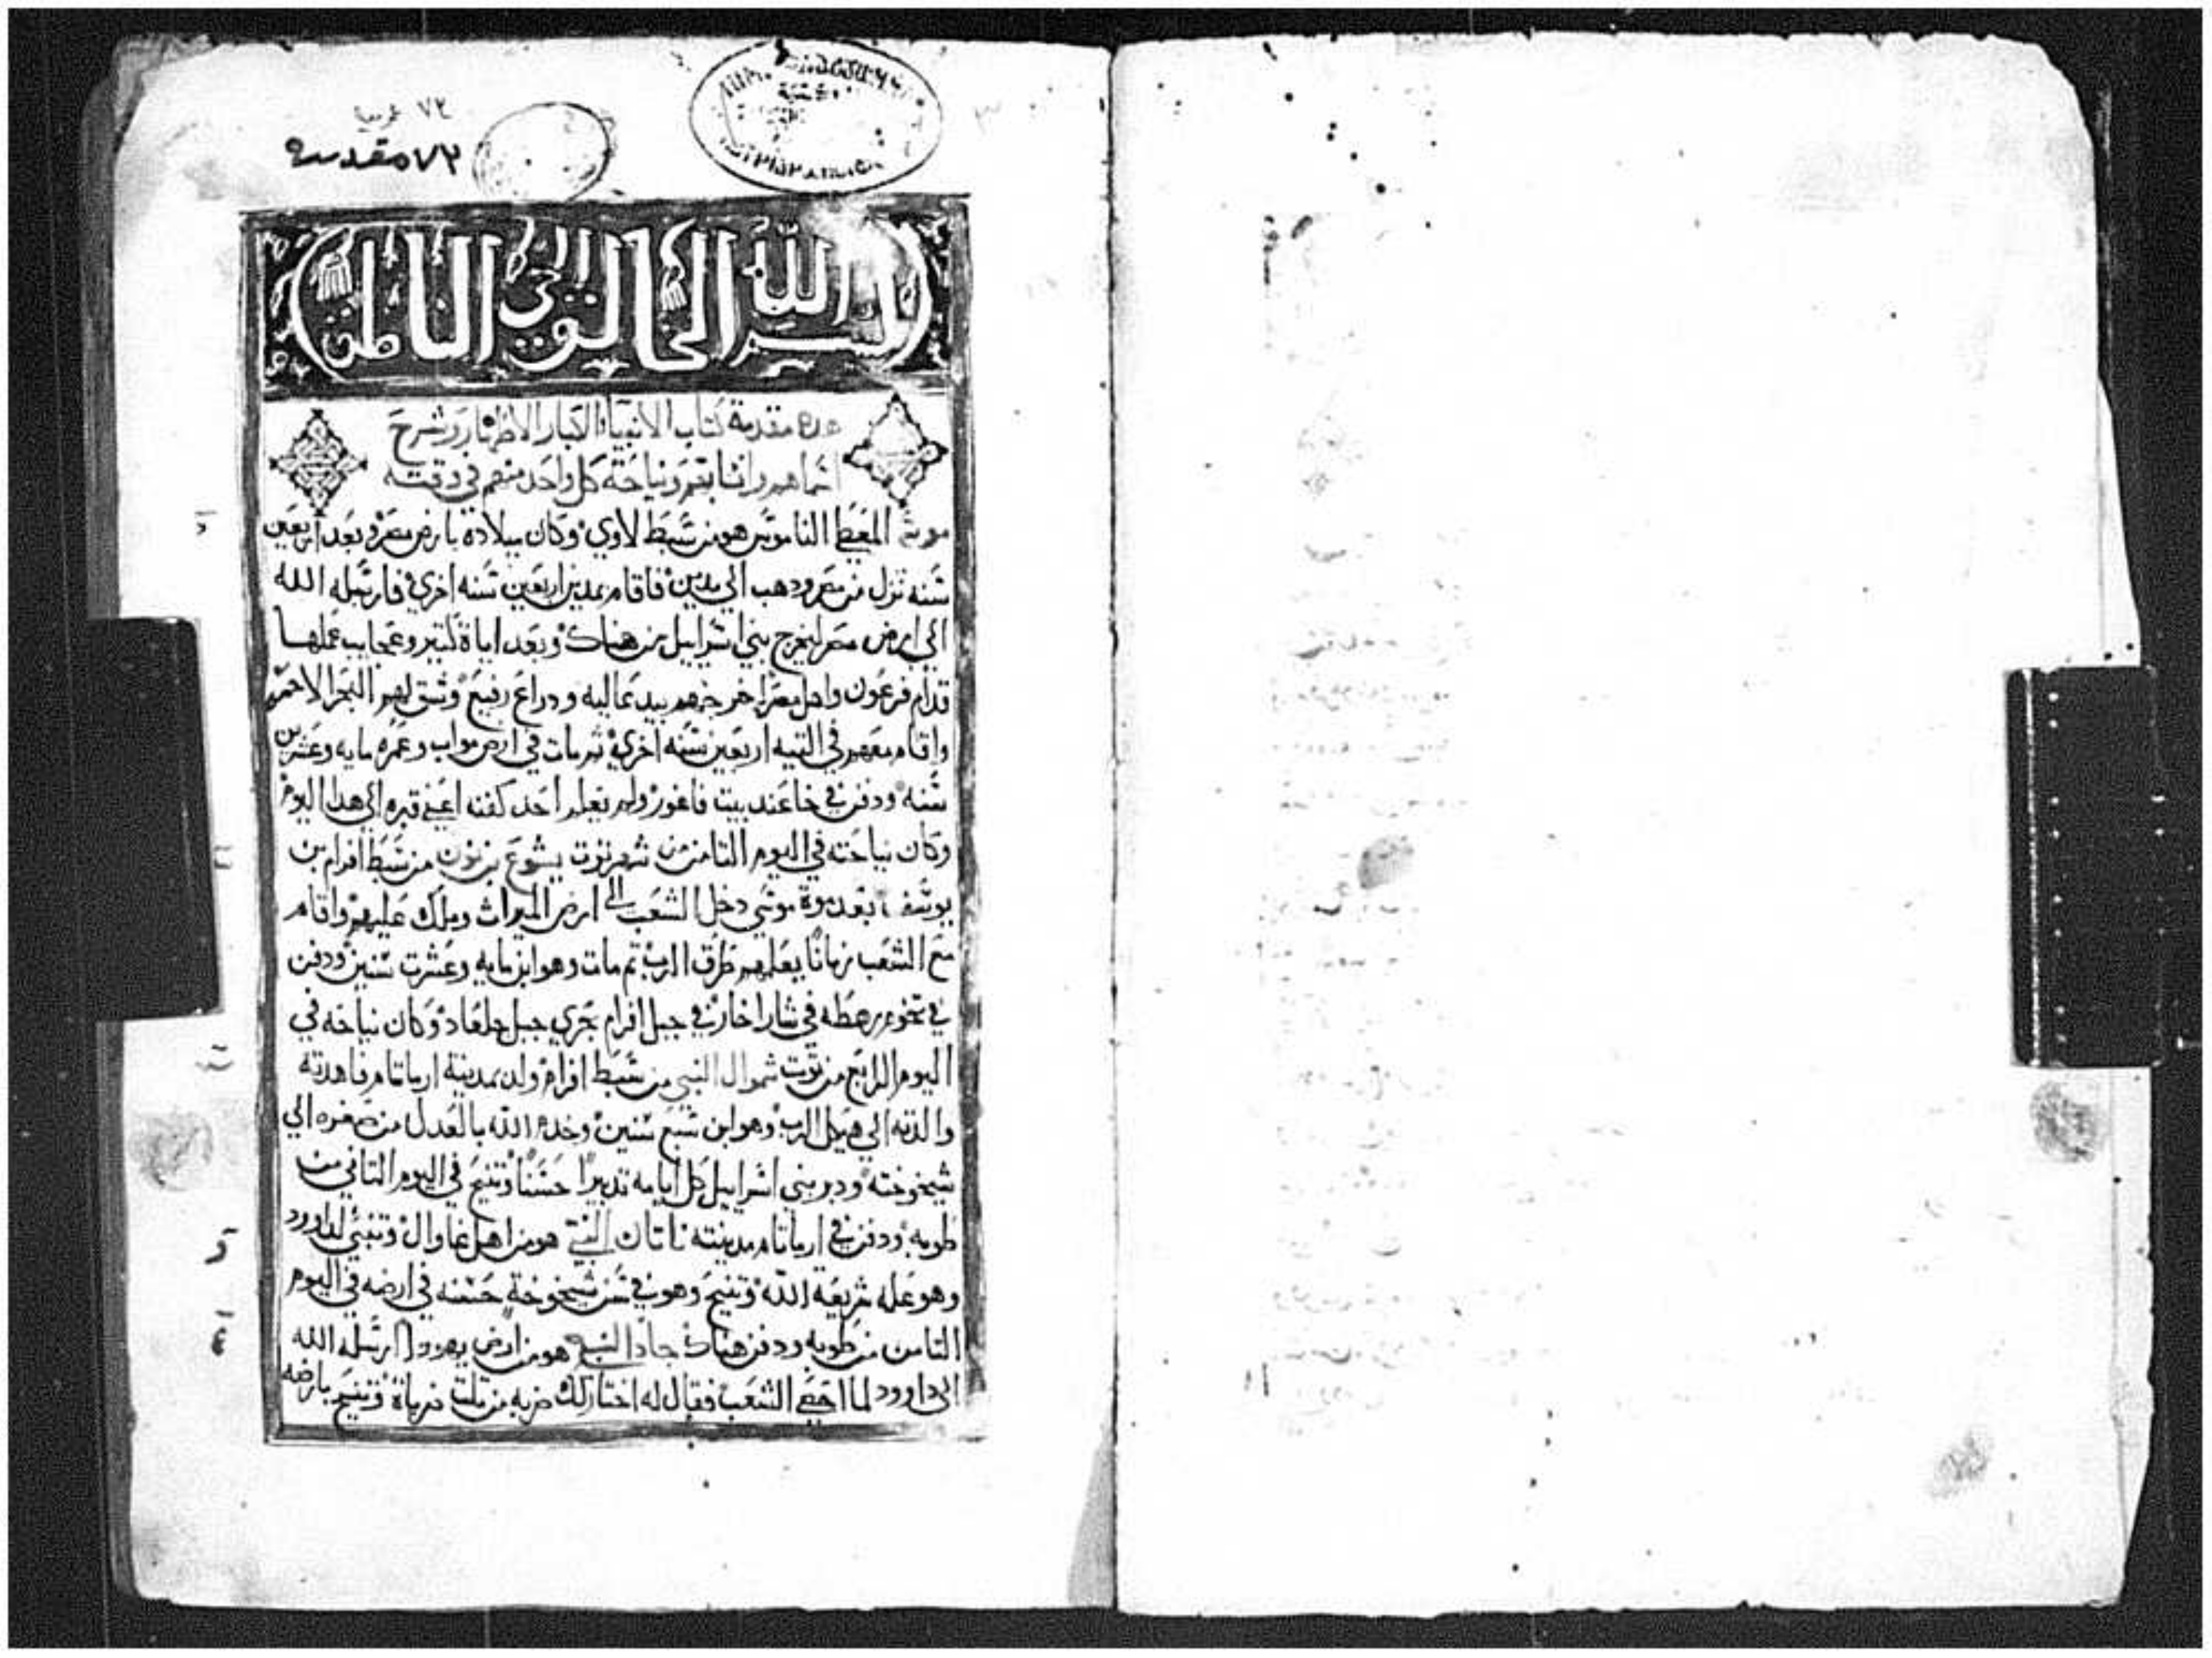 ٧٢ عربي
٧٢ مقدسه
بسم الله الخالق الحي الناطق
هذه مقدمة كتاب الانبياء الكبار الاطهار وشرح
اسماهم وانسابهم ونياحة كل واحد منهم في وقته
موسى المعطي الناموس هو من سبط لاوي وكان ميلاده بارض مصر وبعد اربعين
سنه نزل من مصر ودهب الي مدين فاقام بمدين اربعين سنه اخري فارسله الله
الي ارض مصر ليخرج بني اسراييل من هناك وبعد اياة كتير وعجايب عملها
قدام فرعون واهل مصر اخرجهم بيد عاليه ودراع رفيع وشق لهم البحر الاحمر
واقام معهم في التيه اربعين سنه اخري ثم مات في ارض مواب وعمره مايه وعشرين
سنه ودفن في خا عند بيت فاغور ولم يعلم احد كفنه اعني قبره الي هدا اليوم
وكان نياحته في اليوم التامن من شهر توت يشوع بن نون من سبط افرام بن
يوسف بعد موة موسي دخل الشعب الي ارض الميراث وملك عليهم واقام
مع الشعب زمانا يعلمهم طرق الرب تم مات وهو ابن مايه وعشرت سنين ودفن
في تخوم رهطه في شارا خار في جبل افرام بحري جبل جلعاد وكان نياحه في
اليوم الرابع من توت شموال النبي من سبط افرام ولد بمدينة ارماتام فاهدته
والدته الي هيكل الرب وهو ابن سبع سنين وخدم الله بالعدل من صغره الي
شيخوخته ودبر بني اسراييل كل ايامه تدبيرا حسنا وتنيح في اليوم التاني من
طوبه ودفن في ارماتام مدينته ناتان النبي هو من اهل غاوال وتنبي لداوود
وهو علمه شريعة الله وتنيح وهو في سن شيخوخة حسنه في ارضه في اليوم
التامن من طوبه ودفن هناك جاد النبي هو من ارض يهودا ارسله الله
الي داوود لما احصي الشعب فقال له اختار لك ضربه من تلت ضرباة وتنيح بارضه